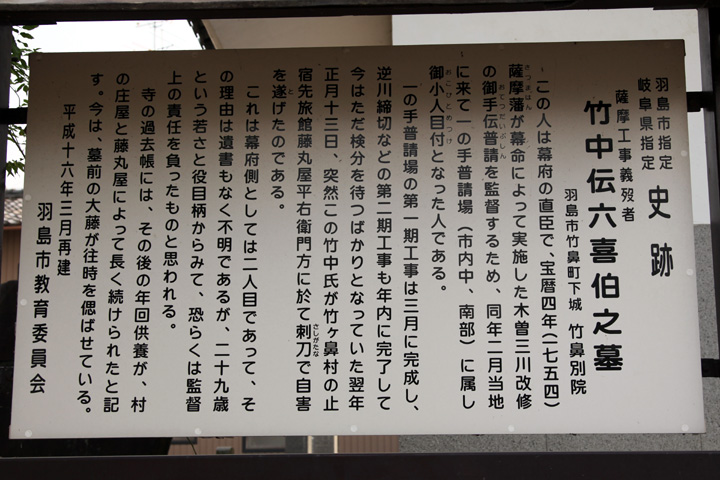 羽島市指定
岐阜県指定
史跡
薩摩工事義歿者
竹中伝六喜伯之墓
羽島市竹鼻町下城 竹鼻別院
この人は幕府の直臣で、宝暦四年(一七五四)
薩摩藩が幕命によって実施した木曽三川改修
の御手伝普請を監督するため、同年二月当地
に来て一の手普請場(市内中、南部)に属し
御小人目付となった人である。
一の手普請場の第一期工事は三月に完成し、
逆川締切などの第二期工事も年内に完了して
今はただ検分を待つばかりとなっていた翌年
正月十三日、突然この竹中氏が竹ヶ鼻村の止
宿先旅館藤丸屋平右衛門方に於て刺刀で自害
を遂げたのである。
これは幕府側としては二人目であって、そ
の理由は遺書もなく不明であるが、二十九歳
という若さと役目柄からみて、恐らくは監督
上の責任を負ったものと思われる。
寺の過去帳には、その後の年回供養が、村
の庄屋と藤丸屋によって長く続けられたと記
す。今は、墓前の大藤が往時を偲ばせている。
平成十六年三月再建
羽島市教育委員会